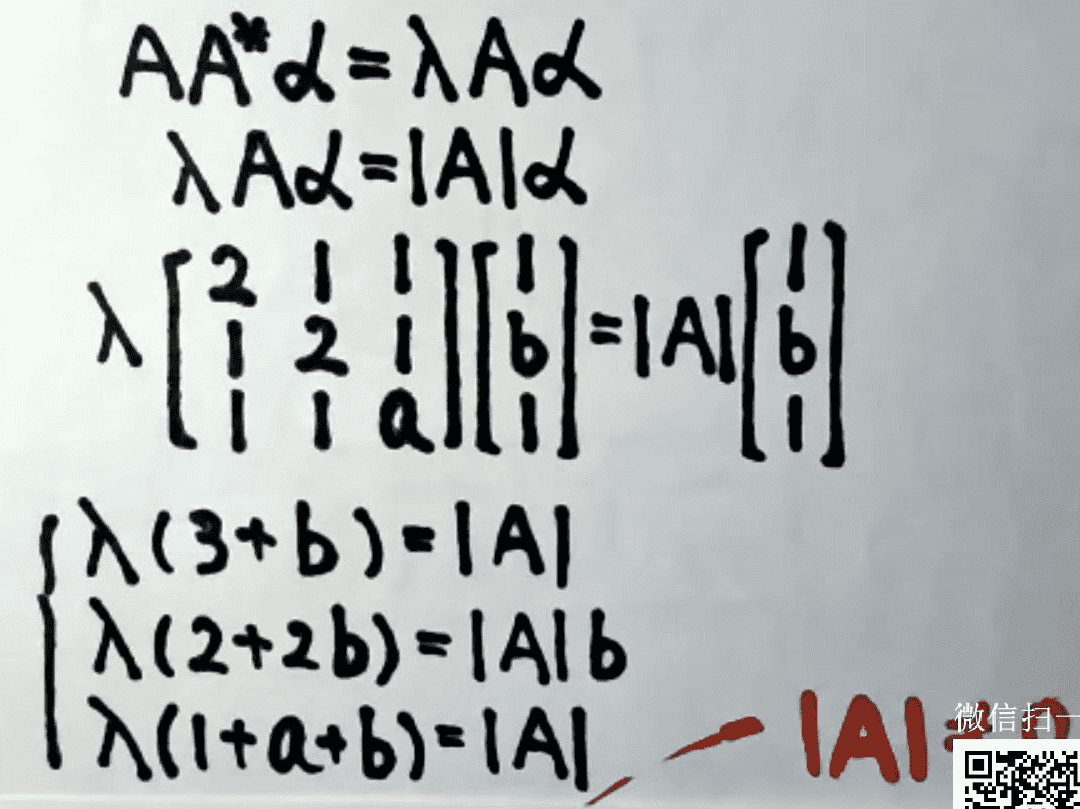 AA*α=λAα
λAα=|A|α
λ[2 1 1; 1 2 1; 1 1 a][1; b; 1]=|A|[1; b; 1]
λ(3+b)=|A|
λ(2+2b)=|A|b
λ(1+a+b)=|A|
|A|
微信扫一